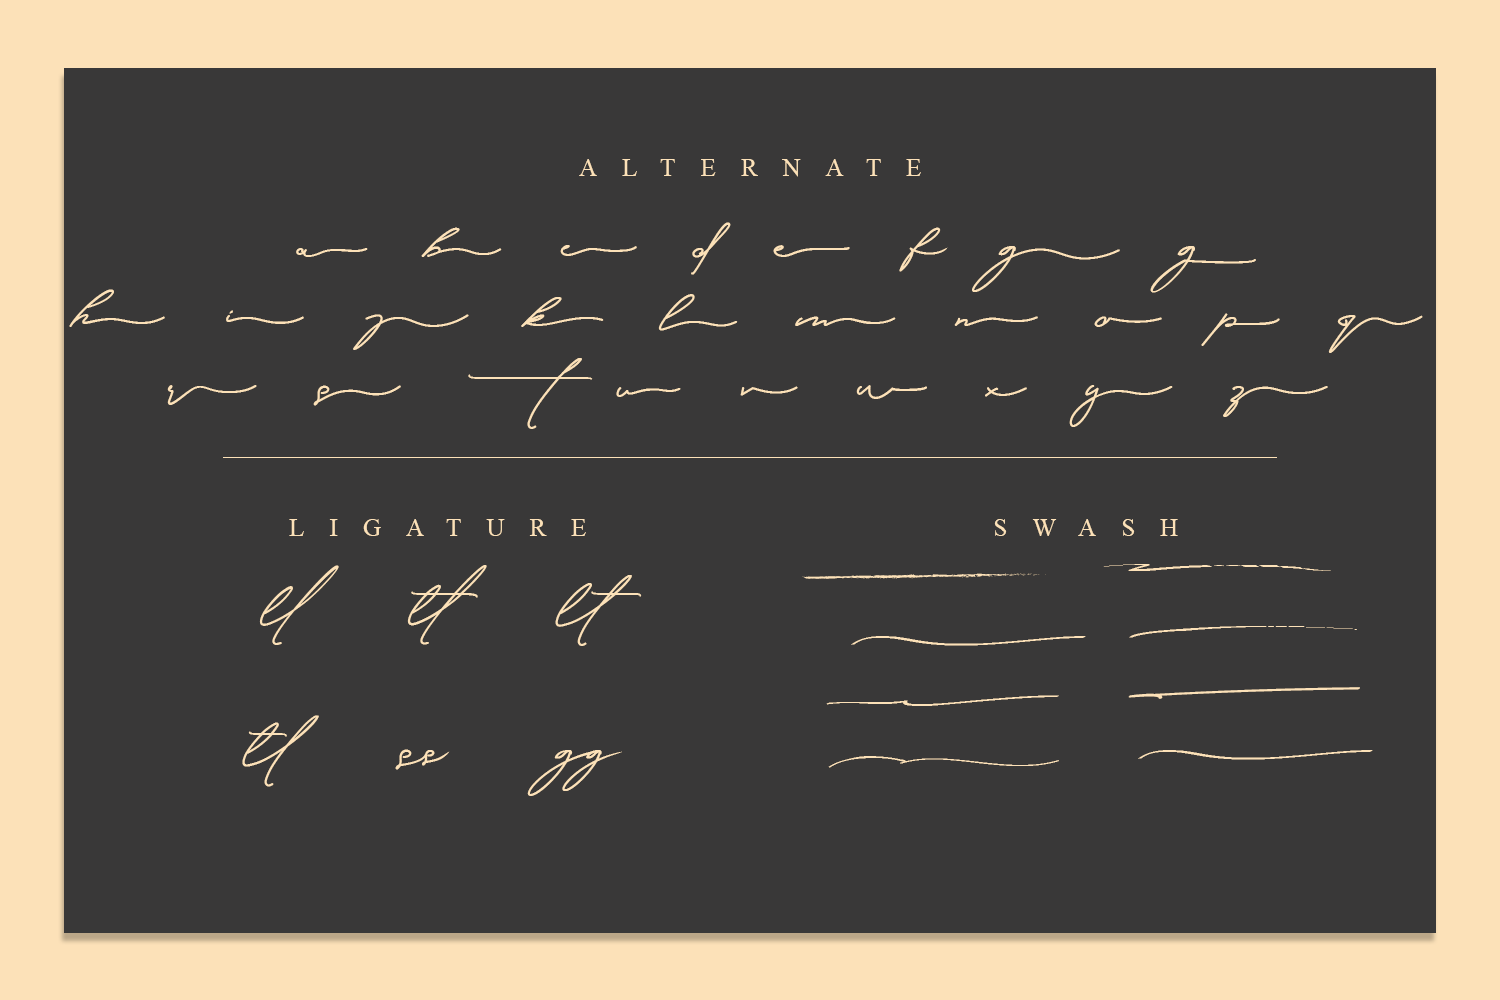 ALTERNATE
a b c d e f g g
h i j k l m n o p q
r s t u v w x y z
LIGATURE SWASH
ll tt lt
tl ss gg